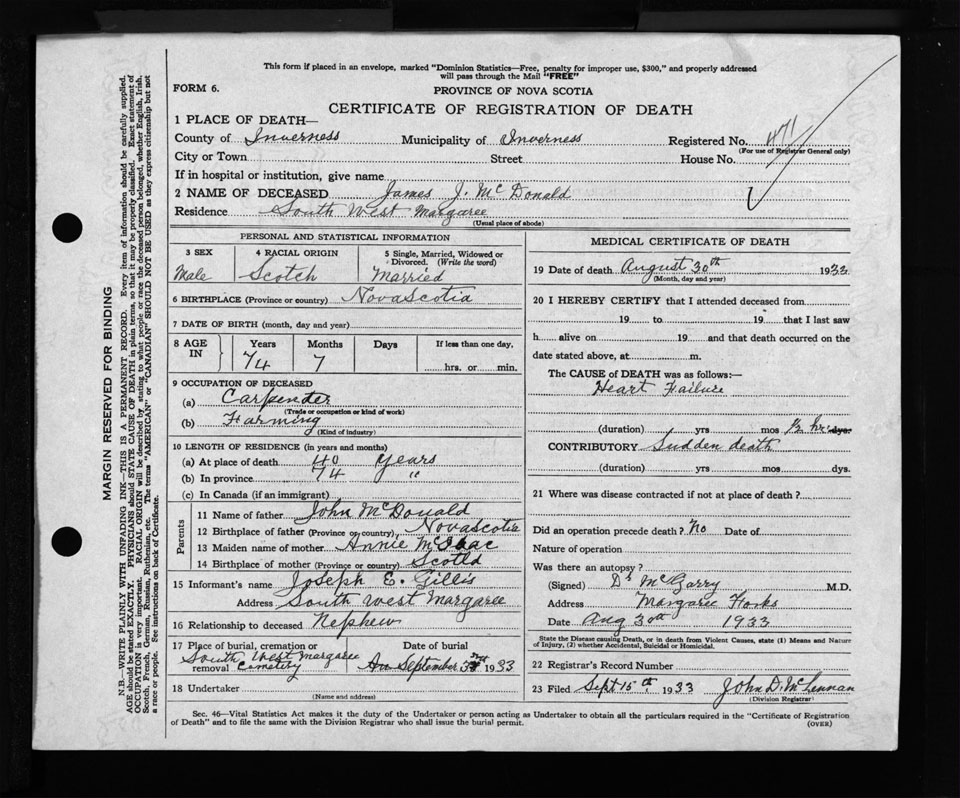 This form if placed in an envelope, marked "Dominion Statistics—Free, penalty for improper use, $300," and properly addressed
will pass through the Mail "FREE"
FORM 6.
PROVINCE OF NOVA SCOTIA
CERTIFICATE OF REGISTRATION OF DEATH
1 PLACE OF DEATH—
County of Inverness Municipality of Inverness Registered No. 471
(For use of Registrar General only)
City or Town Street House No.
If in hospital or institution, give name
2 NAME OF DECEASED James J. McDonald
Residence South West Margaree
(Usual place of abode)
PERSONAL AND STATISTICAL INFORMATION
3 SEX 4 RACIAL ORIGIN 5 Single, Married, Widowed or
Divorced. (Write the word)
Male Scotch Married
6 BIRTHPLACE (Province or country) Nova Scotia
7 DATE OF BIRTH (month, day and year)
8 AGE IN Years Months Days If less than one day,
74 7 hrs. or min.
9 OCCUPATION OF DECEASED
(a) Carpender
(Trade or occupation or kind of work)
(b) Farming
(Kind of industry)
10 LENGTH OF RESIDENCE (in years and months)
(a) At place of death 40 years
(b) In province 74 "
(c) In Canada (if an immigrant)
Parents
11 Name of father John McDonald
12 Birthplace of father (Province or country) Nova Scotia
13 Maiden name of mother Annie McIsaac
14 Birthplace of mother (Province or country) Scotld
15 Informant's name Joseph E. Gillis
Address South West Margaree
16 Relationship to deceased Nephew
17 Place of burial, cremation or Date of burial
removal South West Margaree Cemetery September 1933
18 Undertaker
(Name and address)
MEDICAL CERTIFICATE OF DEATH
19 Date of death August 30th 1933
(Month, day and year)
20 I HEREBY CERTIFY that I attended deceased from
19 to 19 that I last saw
h alive on 19 and that death occurred on the
date stated above, at m.
The CAUSE of DEATH was as follows:—
Heart Failure
(duration) yrs mos ½ hr dys.
CONTRIBUTORY Sudden death
(duration) yrs mos dys.
21 Where was disease contracted if not at place of death?
Did an operation precede death? No Date of
Nature of operation
Was there an autopsy?
(Signed) Dr McGarry M.D.
Address Margaree Forks
Date Aug 30th 1933
State the Disease causing Death, or in death from Violent Causes, state (1) Means and Nature
of Injury, (2) whether Accidental, Suicidal or Homicidal.
22 Registrar's Record Number
23 Filed Sept 15th, 1933 John D. McLennan
(Division Registrar)
Sec. 46—Vital Statistics Act makes it the duty of the Undertaker or person acting as Undertaker to obtain all the particulars required in the "Certificate of Registration
of Death" and to file the same with the Division Registrar who shall issue the burial permit.
(OVER)
MARGIN RESERVED FOR BINDING
N.B.—WRITE PLAINLY WITH UNFADING INK—THIS IS A PERMANENT RECORD. Every item of information should be carefully supplied.
AGE should be stated EXACTLY. PHYSICIANS should STATE CAUSE OF DEATH in plain terms, so that it may be properly classified. Exact statement of
OCCUPATION is very important. RACIAL ORIGIN will be described by stating to what people or race the deceased person belonged, whether English, Irish,
Scotch, French, German, Russian, Ruthenian, etc. The terms "AMERICAN" or "CANADIAN" SHOULD NOT BE USED as they express citizenship but not
a race or people. See instructions on back of Certificate.